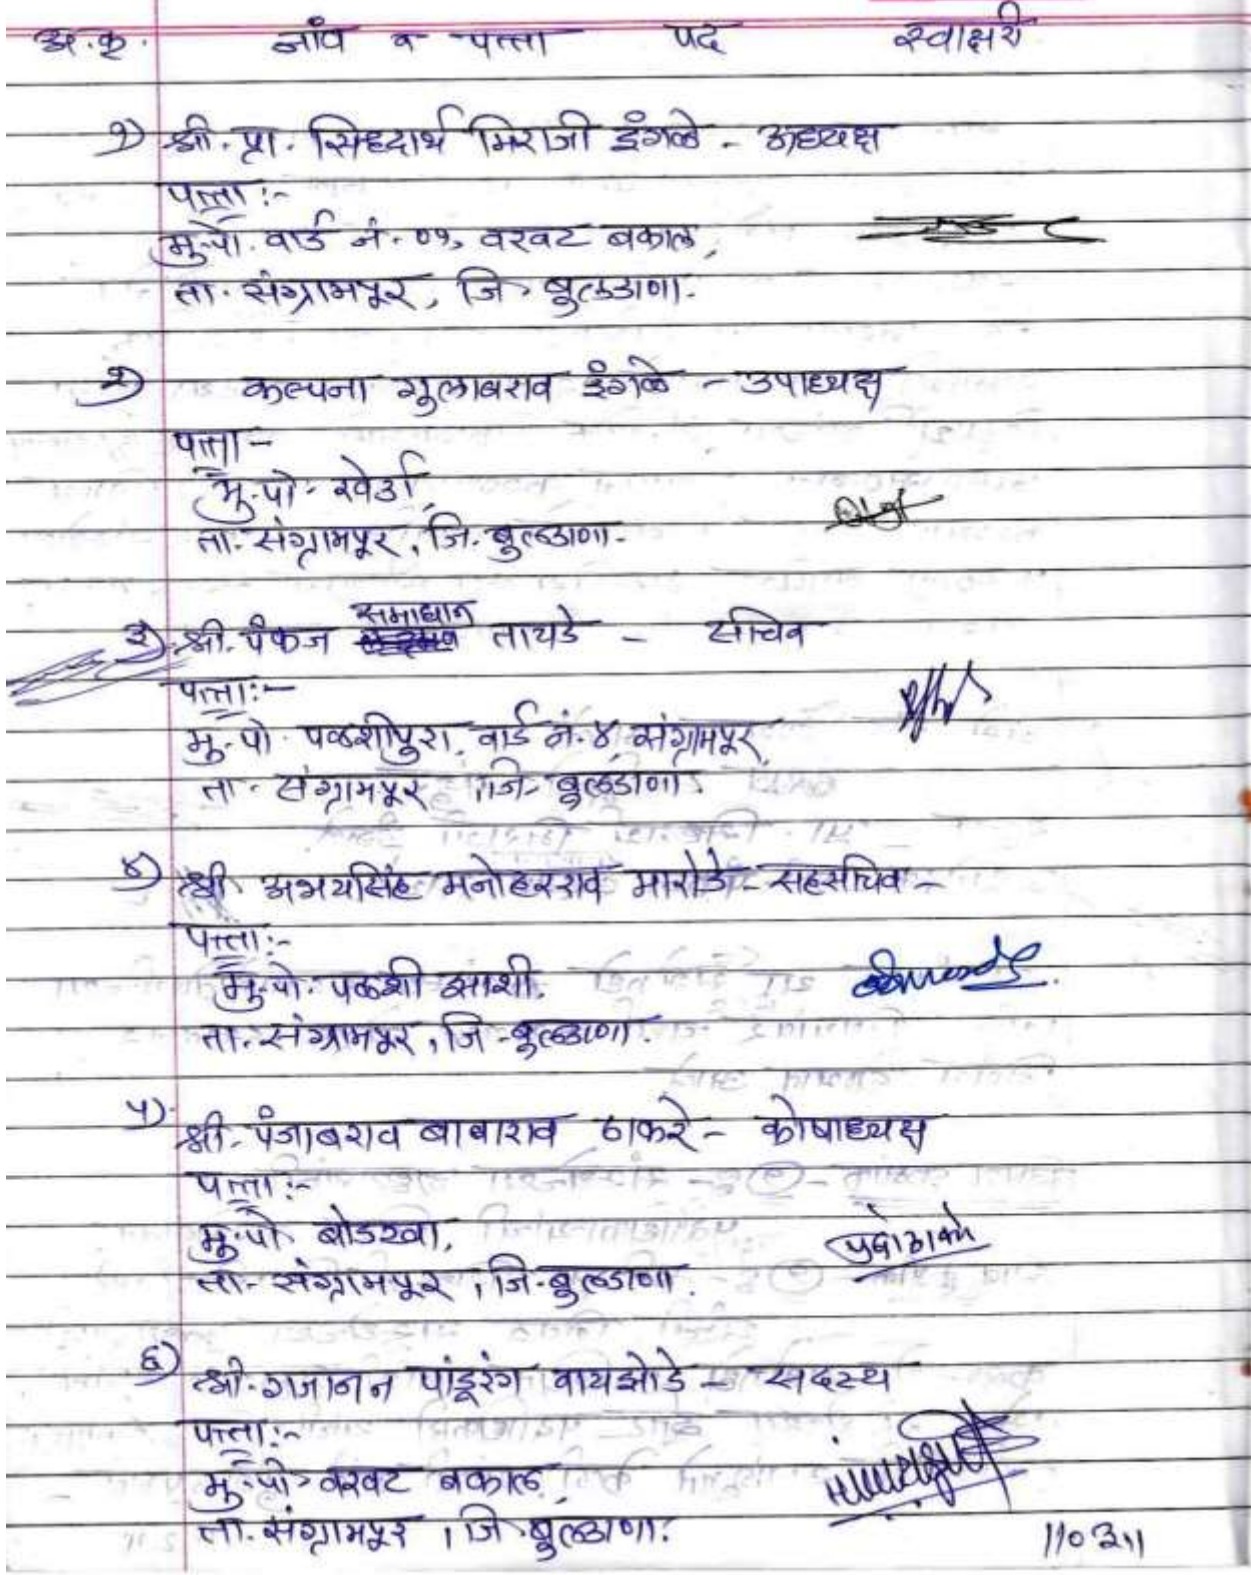 अ.क्र. नांव व पत्ता पद स्वाक्षरी
१) श्री. प्रा. सिध्दार्थ मिराजी इंगळे - अध्यक्ष
पत्ता :-
मु.पो. वार्ड नं. ०१, वरवट बकाल,
ता. संग्रामपूर, जि. बुलडाणा.
२) कल्पना गुलाबराव इंगळे - उपाध्यक्ष
पत्ता -
मु.पो. खेर्डा,
ता. संग्रामपूर, जि. बुलडाणा.
समाधान
३) श्री. पंकज तायडे - सचिव
पत्ता:-
मु. पो. पळशीपुरा, वार्ड नं. ४, संग्रामपूर,
ता. संग्रामपूर, जि. बुलडाणा.
४) श्री. अभयसिंह मनोहरराव मारोडे - सहसचिव -
पत्ता:-
मु.पो. पळशी झाशी.
ता. संग्रामपूर, जि. बुलडाणा.
५) श्री. पंजाबराव बाबाराव ठाकरे - कोषाध्यक्ष
पत्ता :-
मु.पो. बोडखा,
ता. संग्रामपूर, जि. बुलडाणा.
६) श्री. गजानन पांडूरंग वायझोडे - सदस्य
पत्ता:-
मु.पो. वरवट बकाल,
ता. संग्रामपूर, जि. बुलडाणा.